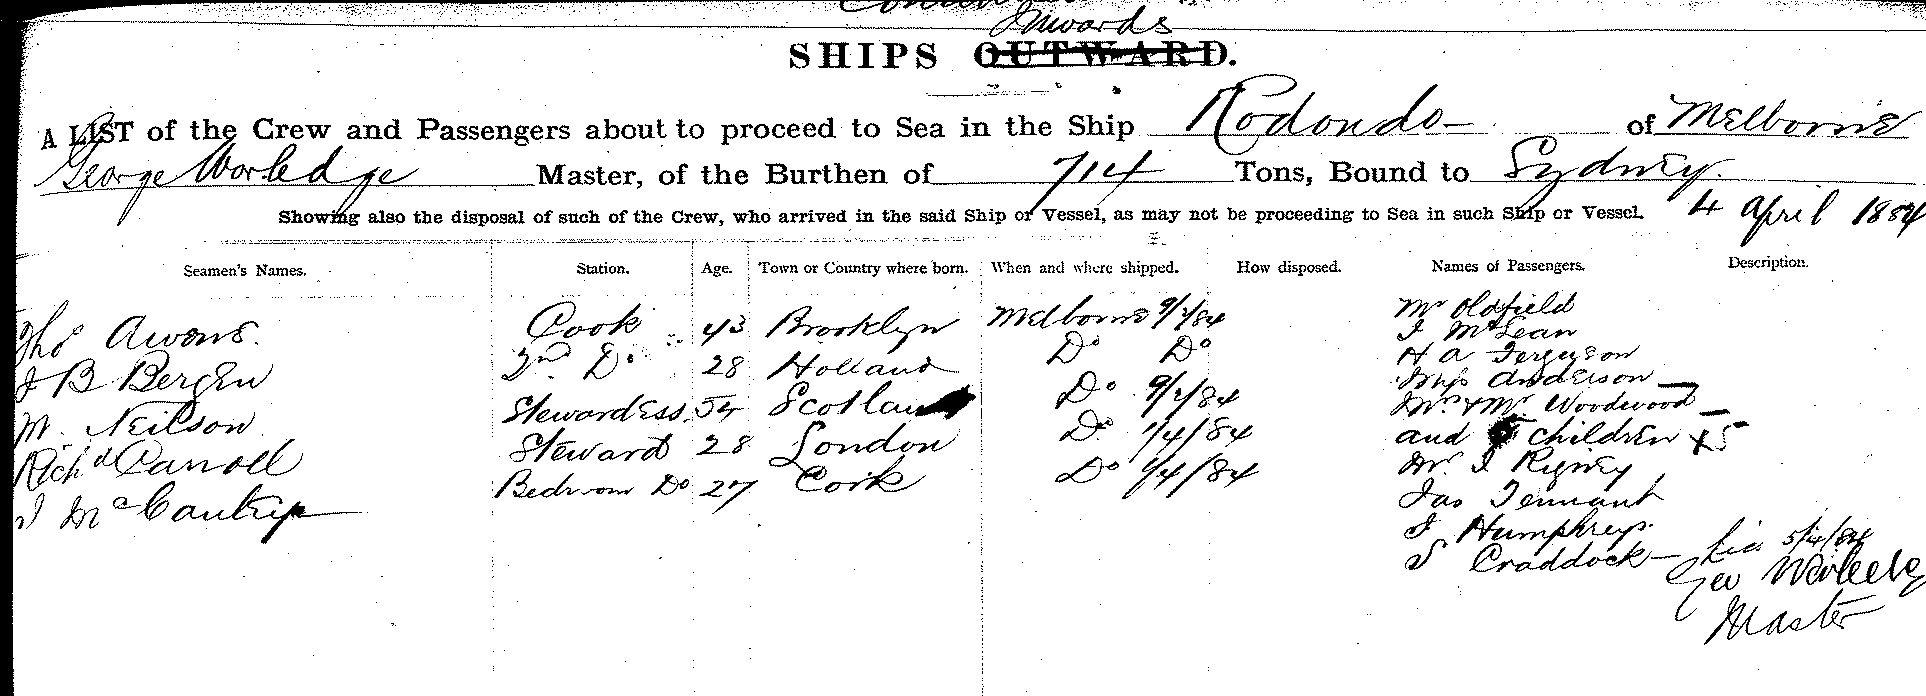 Inwards
SHIPS OUTWARD.
A LIST of the Crew and Passengers about to proceed to Sea in the Ship Rodondo of Melborne
George Worledge Master, of the Burthen of 714 Tons, Bound to Sydney.
Showing also the disposal of such of the Crew, who arrived in the said Ship or Vessel, as may not be proceeding to Sea in such Ship or Vessel. 4 April 1884
Seamen's Names. Station. Age. Town or Country where born. When and where shipped. How disposed. Names of Passengers. Description.
Tho^s Awens. Cook 43 Brooklyn Melborne 9/2/84
J B Bergen 2nd Do 28 Holland Do Do
M. Neilson Stewardess. Scotland Do 9/2/84
Rich^d Carroll Steward 28 London Do 1/4/84
J McCautrip Bedroom Do 27 Cork Do 1/4/84
Mr Oldfield
J McLean
H A Ferguson
Miss Anderson
Mrs & Mr Woodwood
and 5 children x 5
Mr. J Rigney
Jas Tennant
J Humphreys
S Craddock
5/4/84
Geo Worledge
Master